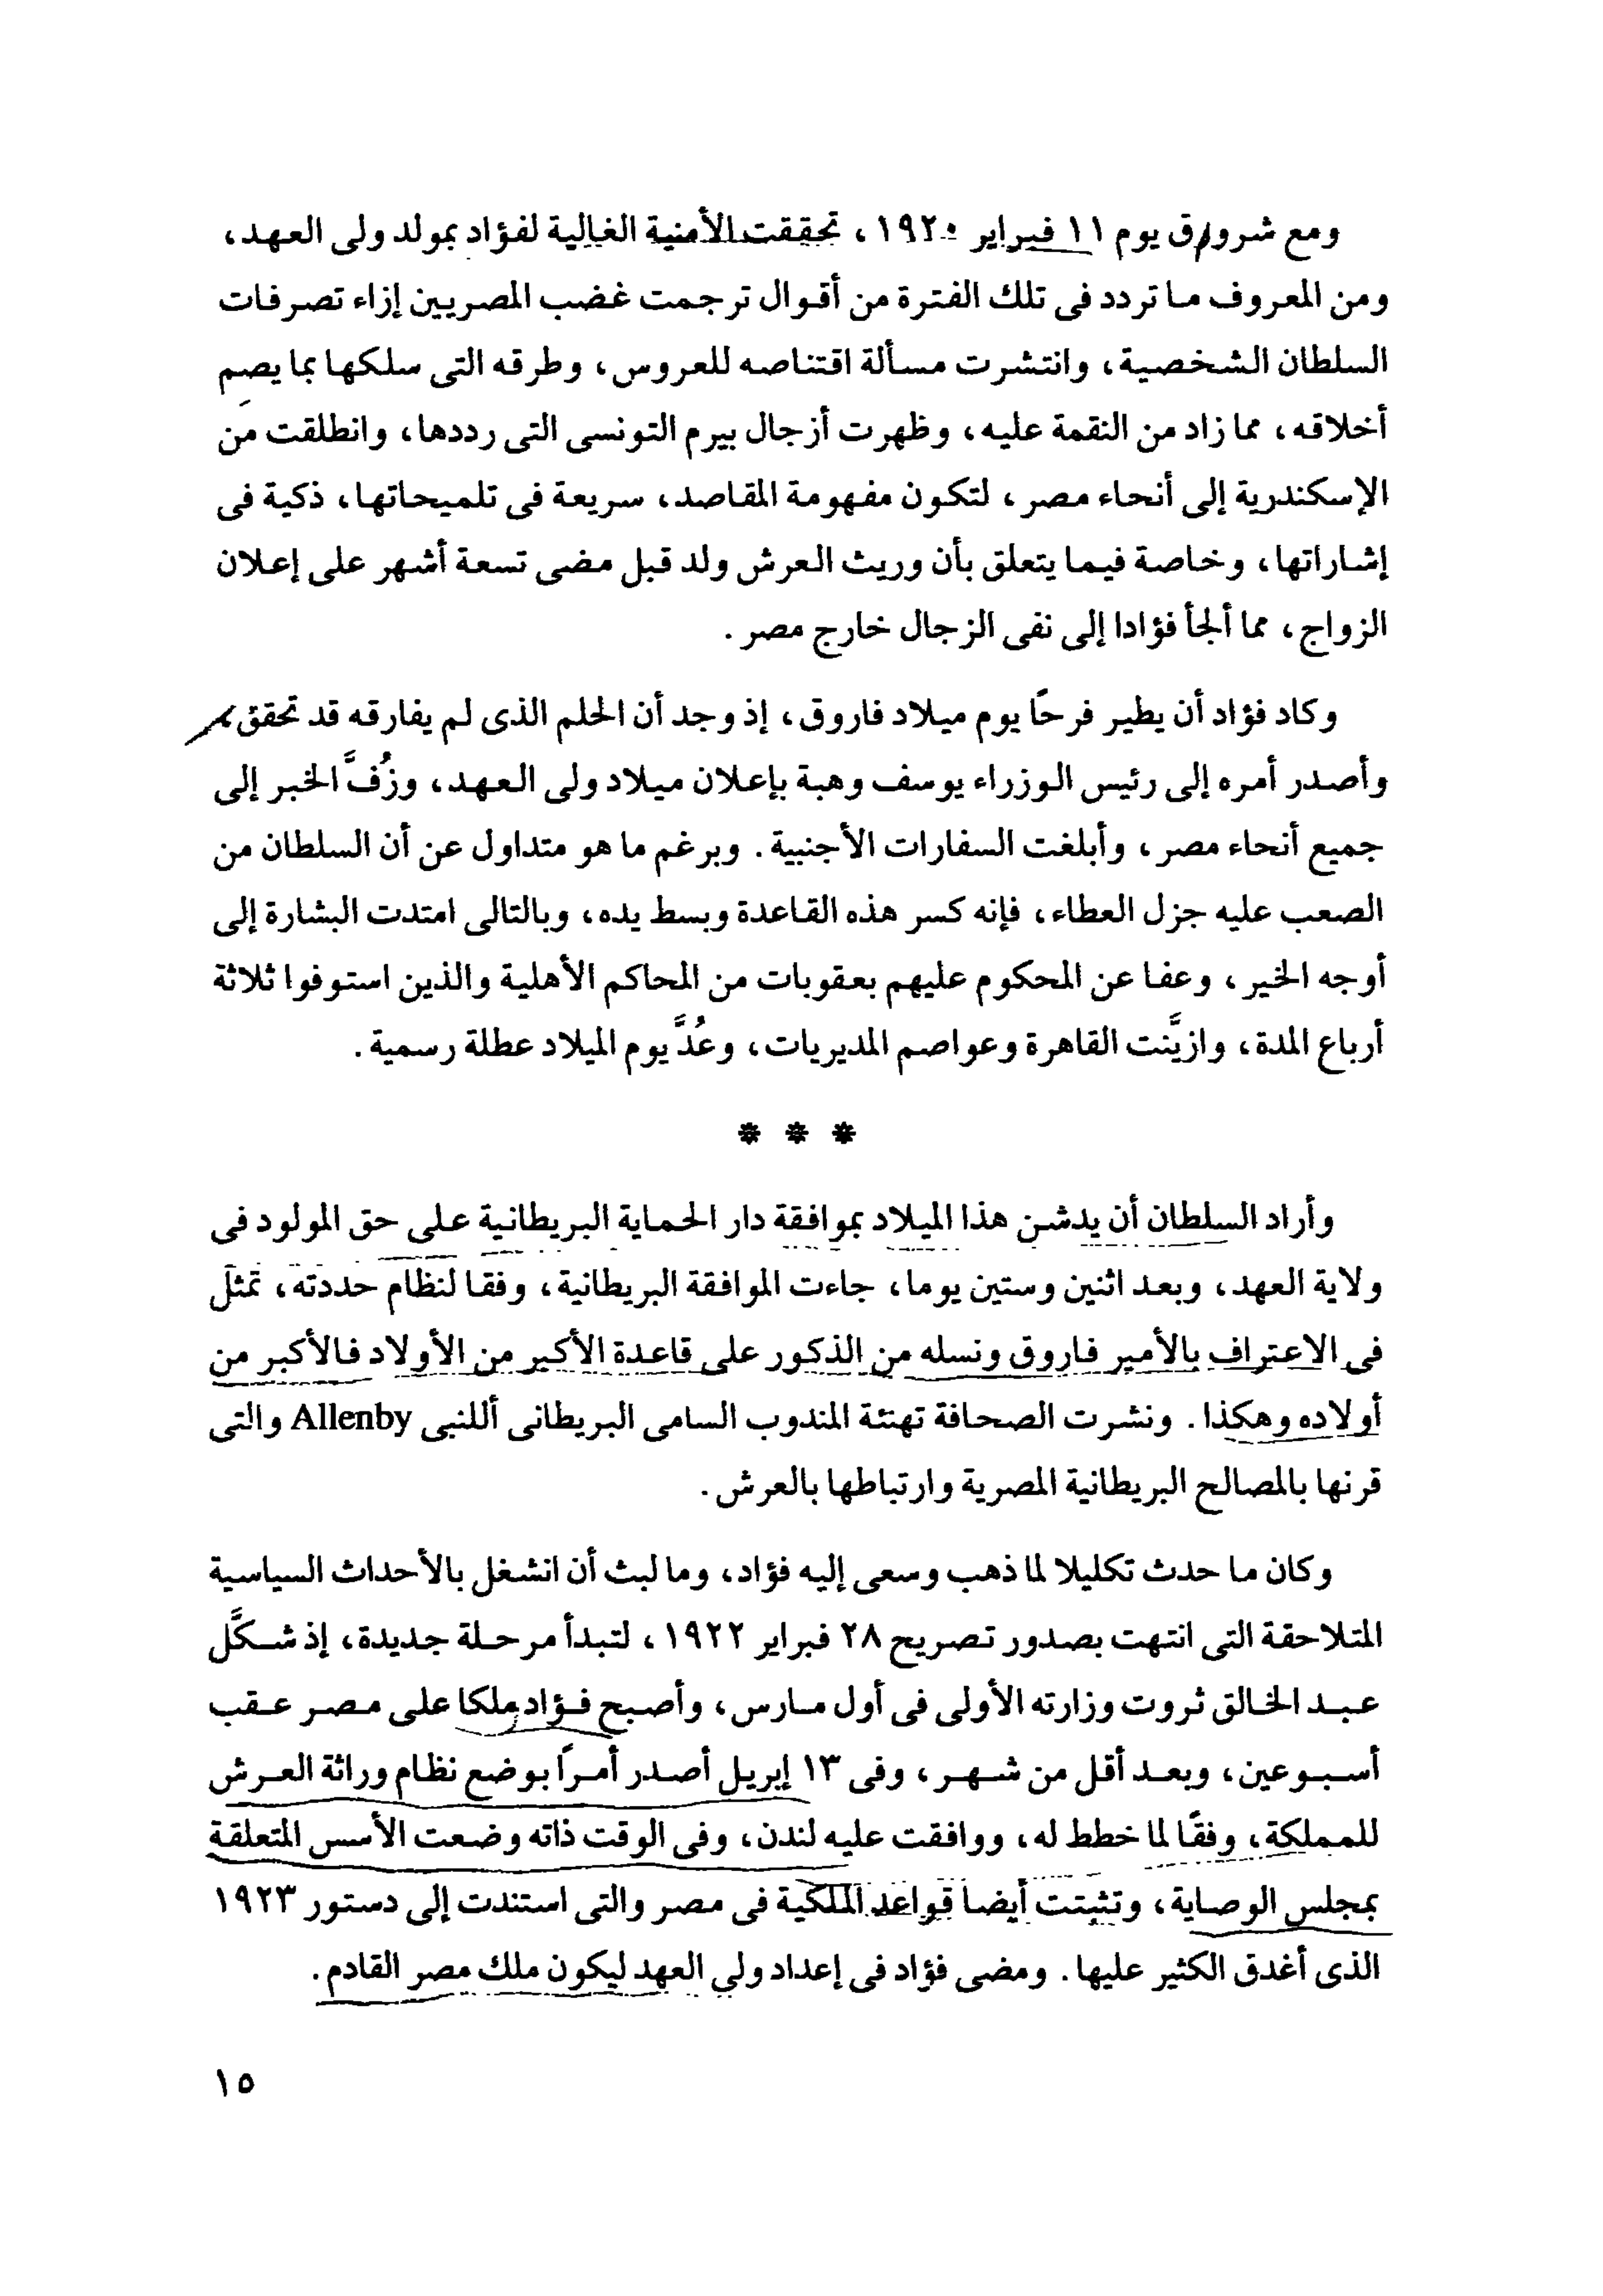 ومع شروق يوم ١١ فبراير ١٩٢٠، تحققت الأمنية الغالية لفؤاد بمولد ولى العهد،
ومن المعروف ما تردد فى تلك الفترة من أقوال ترجمت غضب المصريين إزاء تصرفات
السلطان الشخصية، وانتشرت مسألة اقتناصه للعروس، وطرقه التى سلكها بما يصم
أخلاقه، مما زاد من النقمة عليه، وظهرت أزجال بيرم التونسى التى رددها، وانطلقت من
الإسكندرية إلى أنحاء مصر، لتكون مفهومة المقاصد، سريعة فى تلميحاتها، ذكية فى
إشاراتها، وخاصة فيما يتعلق بأن وريث العرش ولد قبل مضى تسعة أشهر على إعلان
الزواج، مما ألجأ فؤادا إلى نفى الزجال خارج مصر.
وكاد فؤاد أن يطير فرحًا يوم ميلاد فاروق، إذ وجد أن الحلم الذى لم يفارقه قد تحقق،
وأصدر أمره إلى رئيس الوزراء يوسف وهبة بإعلان ميلاد ولى العهد، وزُفَّ الخبر إلى
جميع أنحاء مصر، وأبلغت السفارات الأجنبية. وبرغم ما هو متداول عن أن السلطان من
الصعب عليه جزل العطاء، فإنه كسر هذه القاعدة وبسط يده، وبالتالى امتدت البشارة إلى
أوجه الخير، وعفا عن المحكوم عليهم بعقوبات من المحاكم الأهلية والذين استوفوا ثلاثة
أرباع المدة، وازيَّنت القاهرة وعواصم المديريات، وعُدَّ يوم الميلاد عطلة رسمية.
* * *
وأراد السلطان أن يدشن هذا الميلاد بموافقة دار الحماية البريطانية على حق المولود فى
ولاية العهد، وبعد اثنين وستين يوما، جاءت الموافقة البريطانية، وفقا لنظام حددته، تمثل
فى الاعتراف بالأمير فاروق ونسله من الذكور على قاعدة الأكبر من الأولاد فالأكبر من
أولاده وهكذا. ونشرت الصحافة تهنئة المندوب السامى البريطانى أللنبى Allenby والتى
قرنها بالمصالح البريطانية المصرية وارتباطها بالعرش.
وكان ما حدث تكليلا لما ذهب وسعى إليه فؤاد، وما لبث أن انشغل بالأحداث السياسية
المتلاحقة التى انتهت بصدور تصريح ٢٨ فبراير ١٩٢٢، لتبدأ مرحلة جديدة، إذ شكَّل
عبد الخالق ثروت وزارته الأولى فى أول مارس، وأصبح فؤاد ملكا على مصر عقب
أسبوعين، وبعد أقل من شهر، وفى ١٣ إبريل أصدر أمرًا بوضع نظام وراثة العرش
للمملكة، وفقًا لما خطط له، ووافقت عليه لندن، وفى الوقت ذاته وضعت الأسس المتعلقة
بمجلس الوصاية، وتثبتت أيضا قواعد الملكية فى مصر والتى استندت إلى دستور ١٩٢٣
الذى أغدق الكثير عليها. ومضى فؤاد فى إعداد ولى العهد ليكون ملك مصر القادم.
١٥